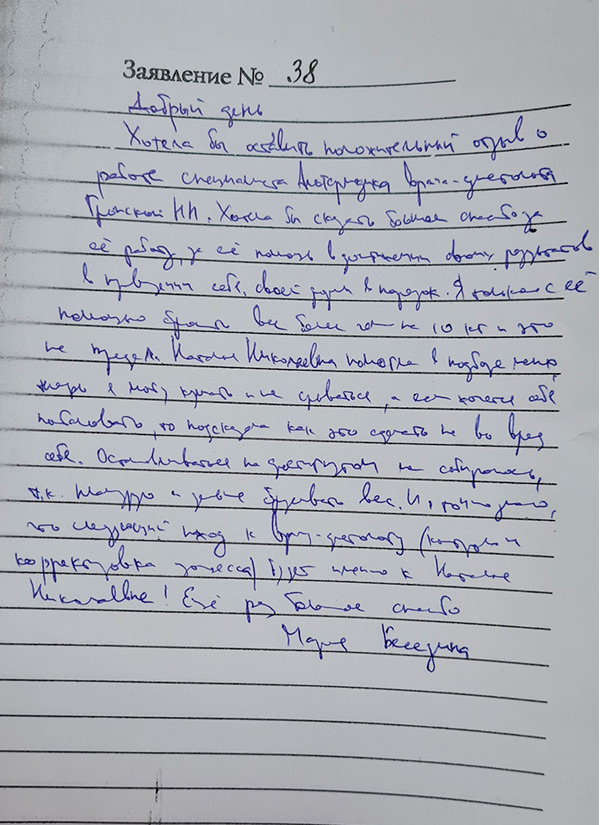 Заявление № 38
Добрый день
Хотела бы оставить положительный отзыв о
работе специалиста врача-диетолога
Тронской Н.Н. Хотела бы сказать большое спасибо за
её работу, за её помощь в достижении своих результатов
в приведении себя, своей в порядок. Я только с её
помощью вес более чем на 10 кг и это
не предел. Наталья Николаевна помогла в подборе меню
теперь я могу кушать и не срываться, а если хочется себя
побаловать, то подсказала как это сделать не во вред
себе. Останавливаться на достигнутом не собираюсь,
т.к. и дальше сбрасывать вес. И, точно знаю,
что следующий поход к врачу-диетологу (контроль и
корректировка процесса) будет именно к Наталье
Николаевне! Ещё раз большое спасибо
Мария Беседина